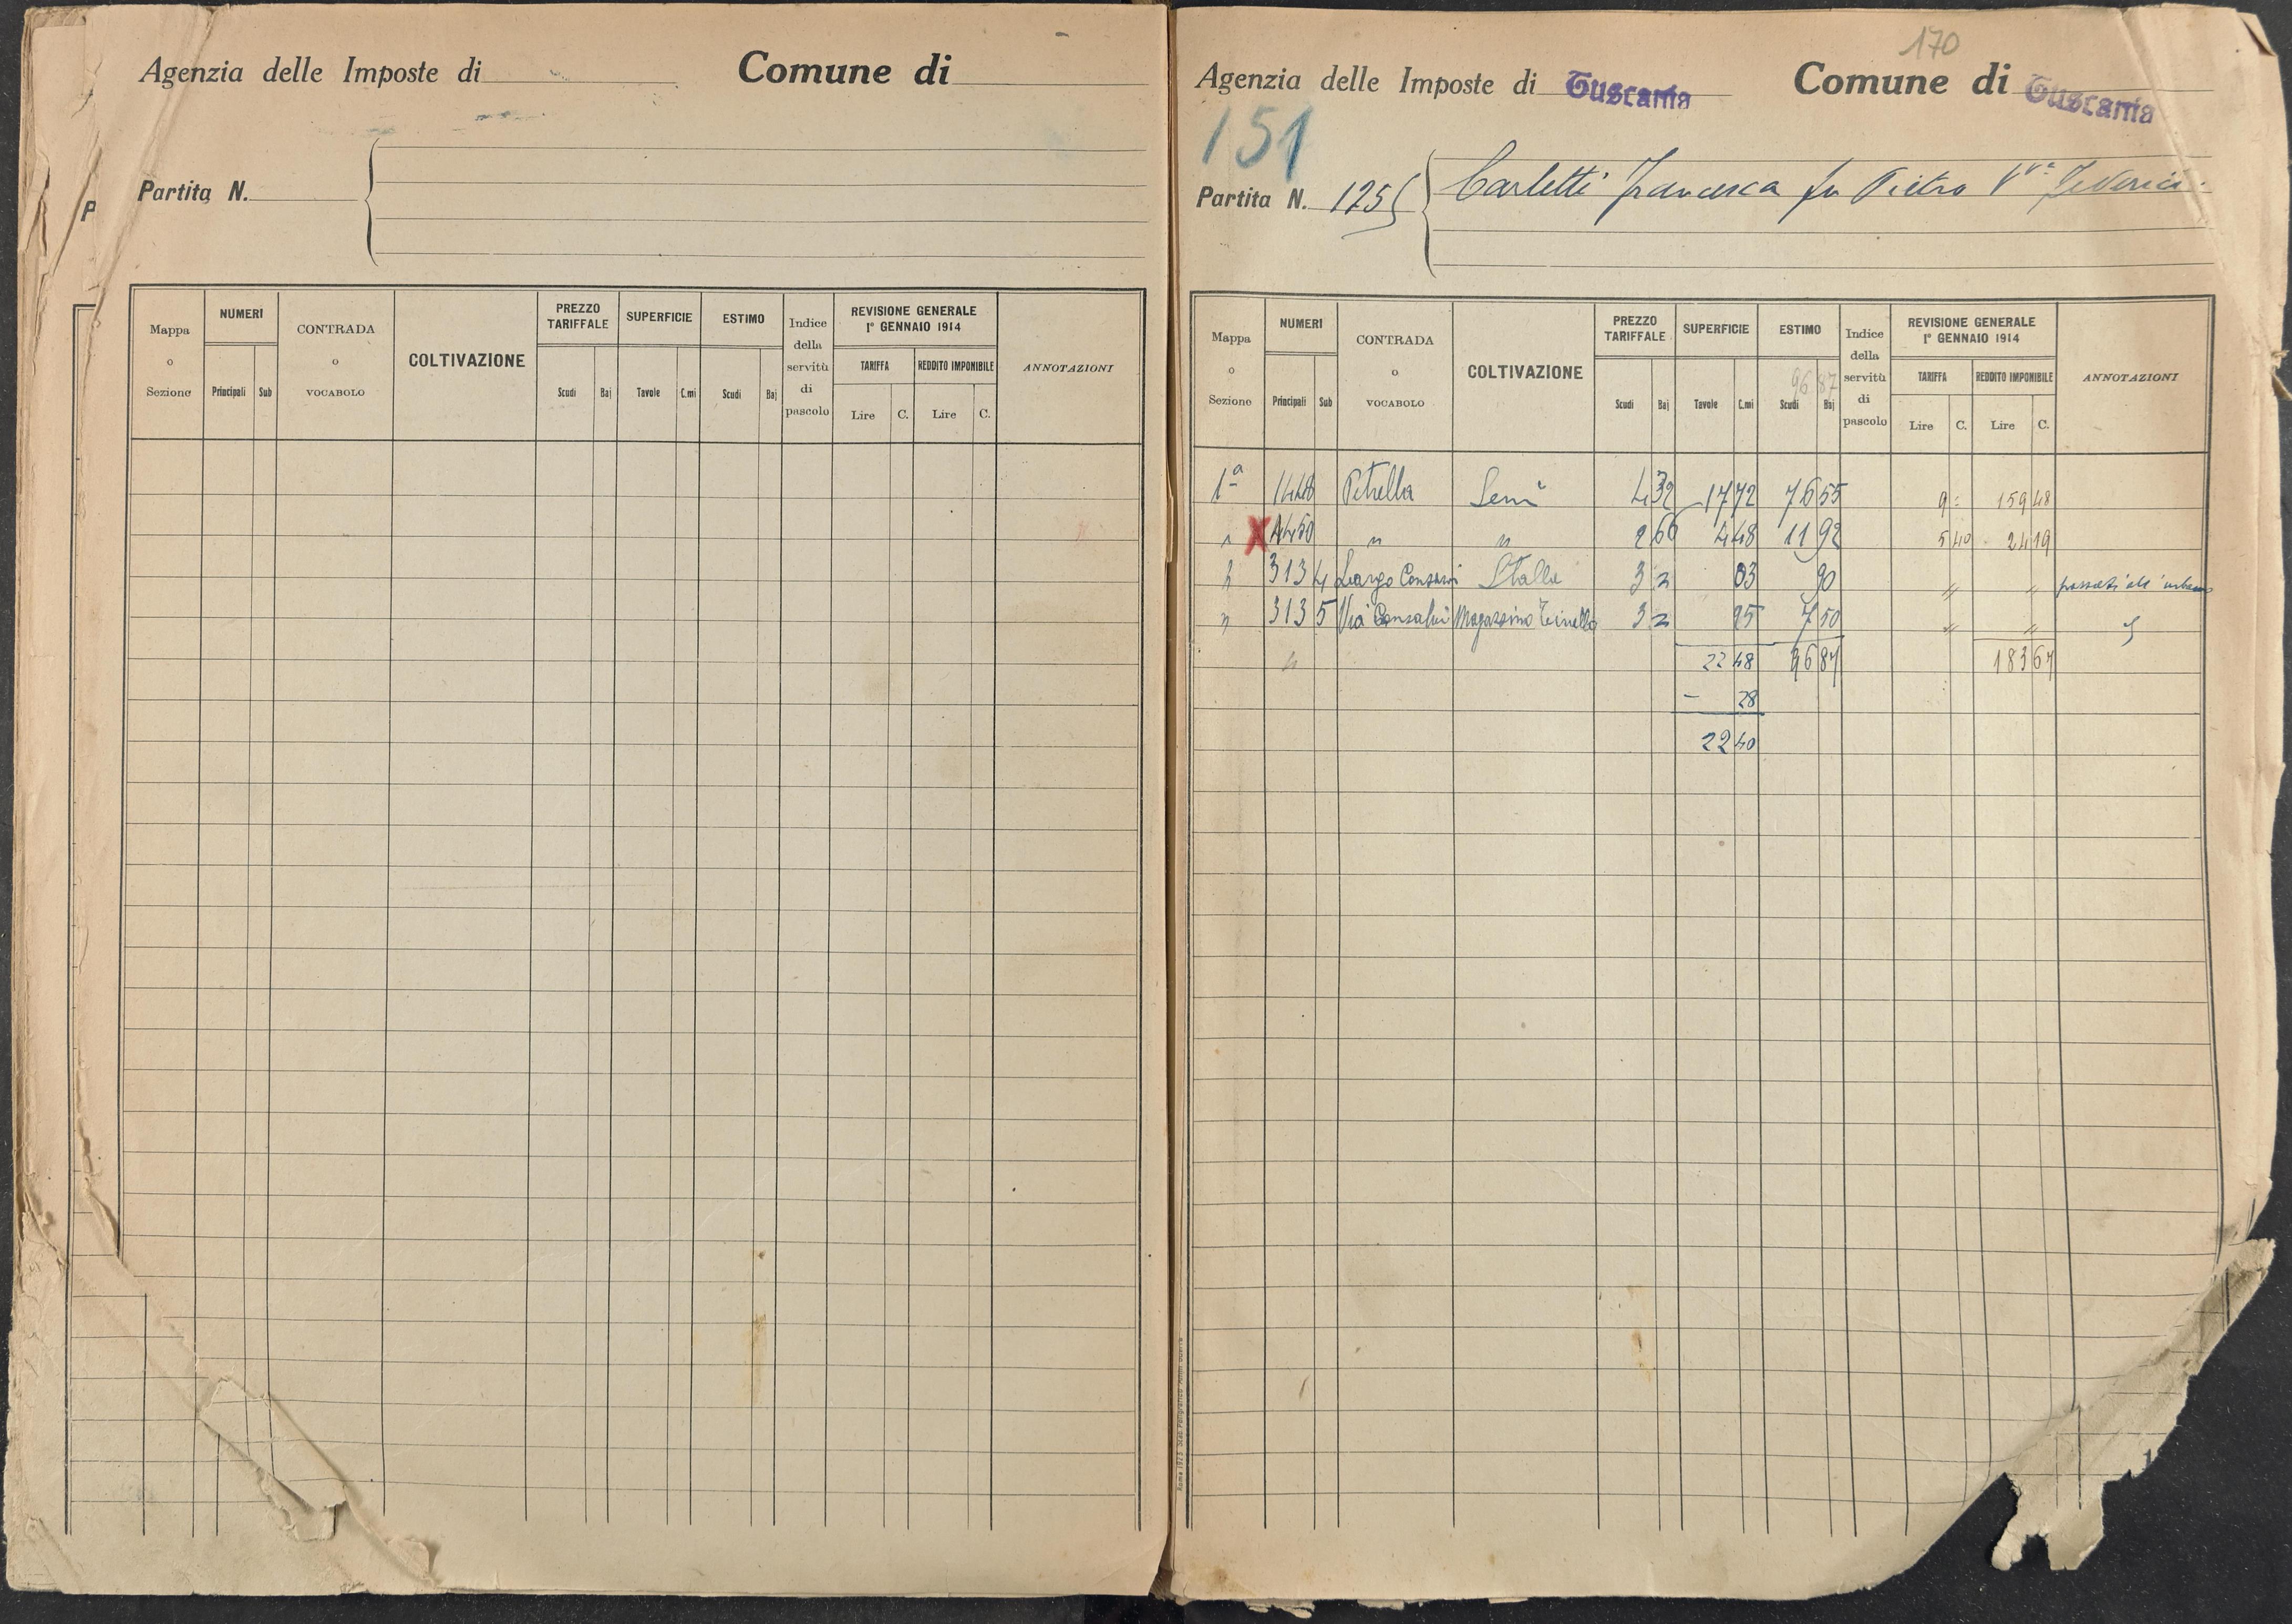 Agenzia delle Imposte di Comune di
Partita N.
P
Mappa o Sezione NUMERI CONTRADA o VOCABOLO COLTIVAZIONE PREZZO TARIFFALE SUPERFICIE ESTIMO Indice della servitù di pascolo REVISIONE GENERALE 1° GENNAIO 1914 ANNOTAZIONI
TARIFFA REDDITO IMPONIBILE
Principali Sub Scudi Baj Tavole C.mi Scudi Baj Lire C. Lire C.
170
Agenzia delle Imposte di Tuscania Comune di Tuscania
151
Partita N. 1255 Carletti Francesca fu Pietro Vva
Mappa o Sezione NUMERI CONTRADA o VOCABOLO COLTIVAZIONE PREZZO TARIFFALE SUPERFICIE ESTIMO Indice della servitù di pascolo REVISIONE GENERALE 1° GENNAIO 1914 ANNOTAZIONI
TARIFFA REDDITO IMPONIBILE
96 87
Principali Sub Scudi Baj Tavole C.mi Scudi Baj Lire C. Lire C.
1a 1448 Petrella Semi 4 32 17 72 76 55 9 = 159 48
" X 1450 " " 2 66 4 48 11 92 5 40 24 19
" 3134 Largo Stalla 3 2 03 90 " " passati all'urbano
" 3135 Via Consalvi Magazzino Tinello 3 2 25 7 50 " " "
" 22 48 96 87 183 67
- 28
22 40
Roma 1925 Stab. Poligrafico Amm. Guerra